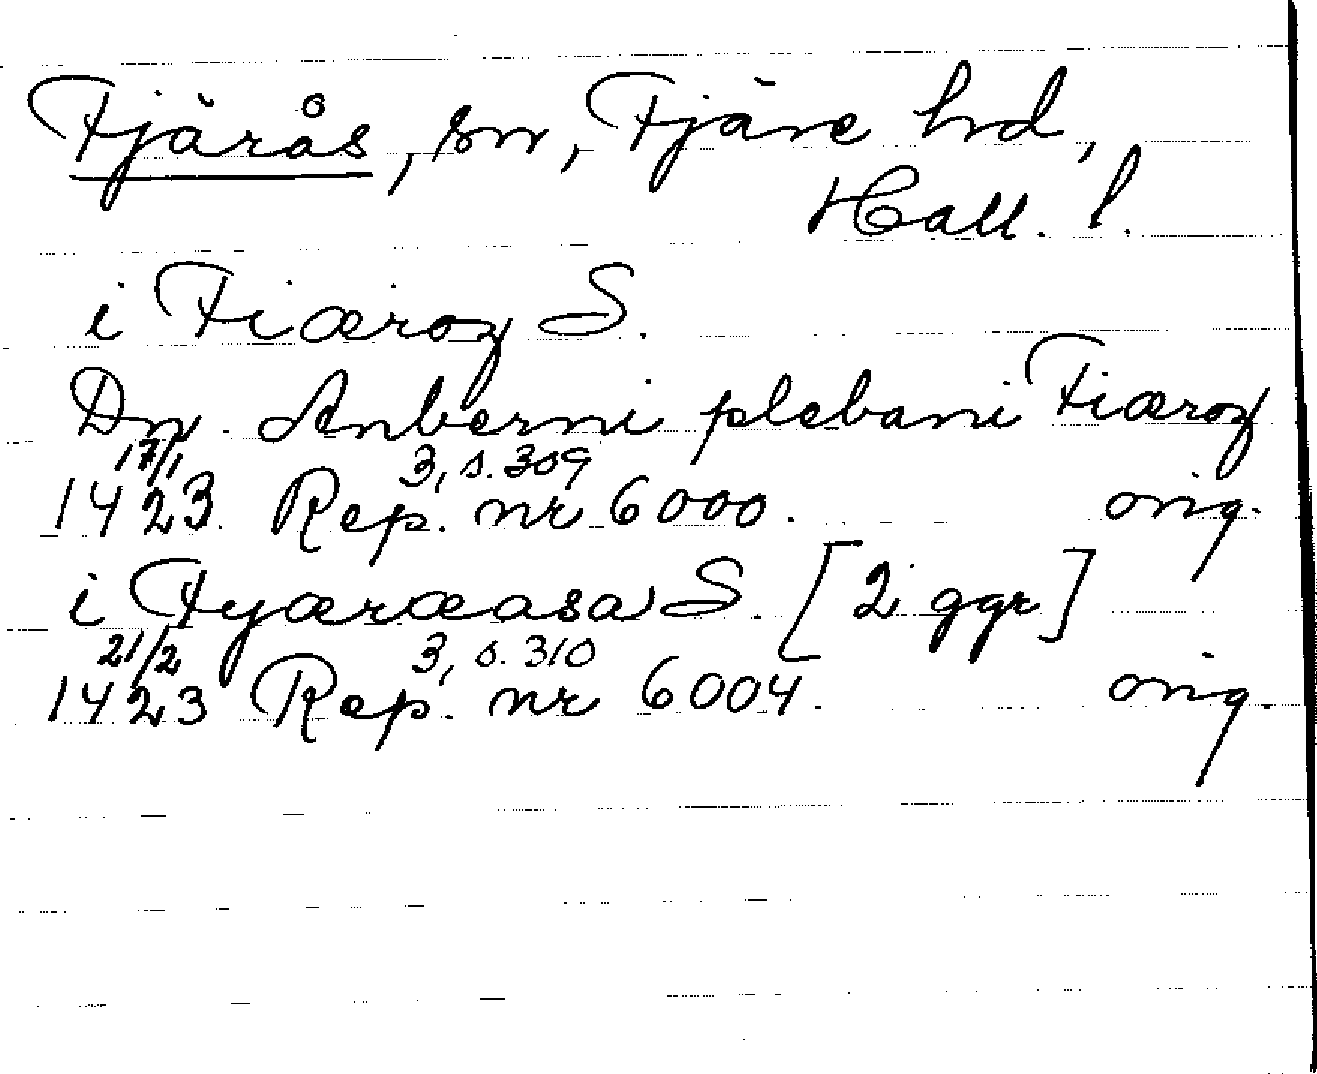 Fjärås, sn, Fjäre hd,
Hall. l.
i Fiæroz S.
Dn. Anberni plebani Fiæroz
17/1 3, s. 309
1423 Rep. nr 6000. orig.
i Fyæræasa S. [2 ggr]
21/2 3, s. 310
1423 Rep. nr 6004. orig.